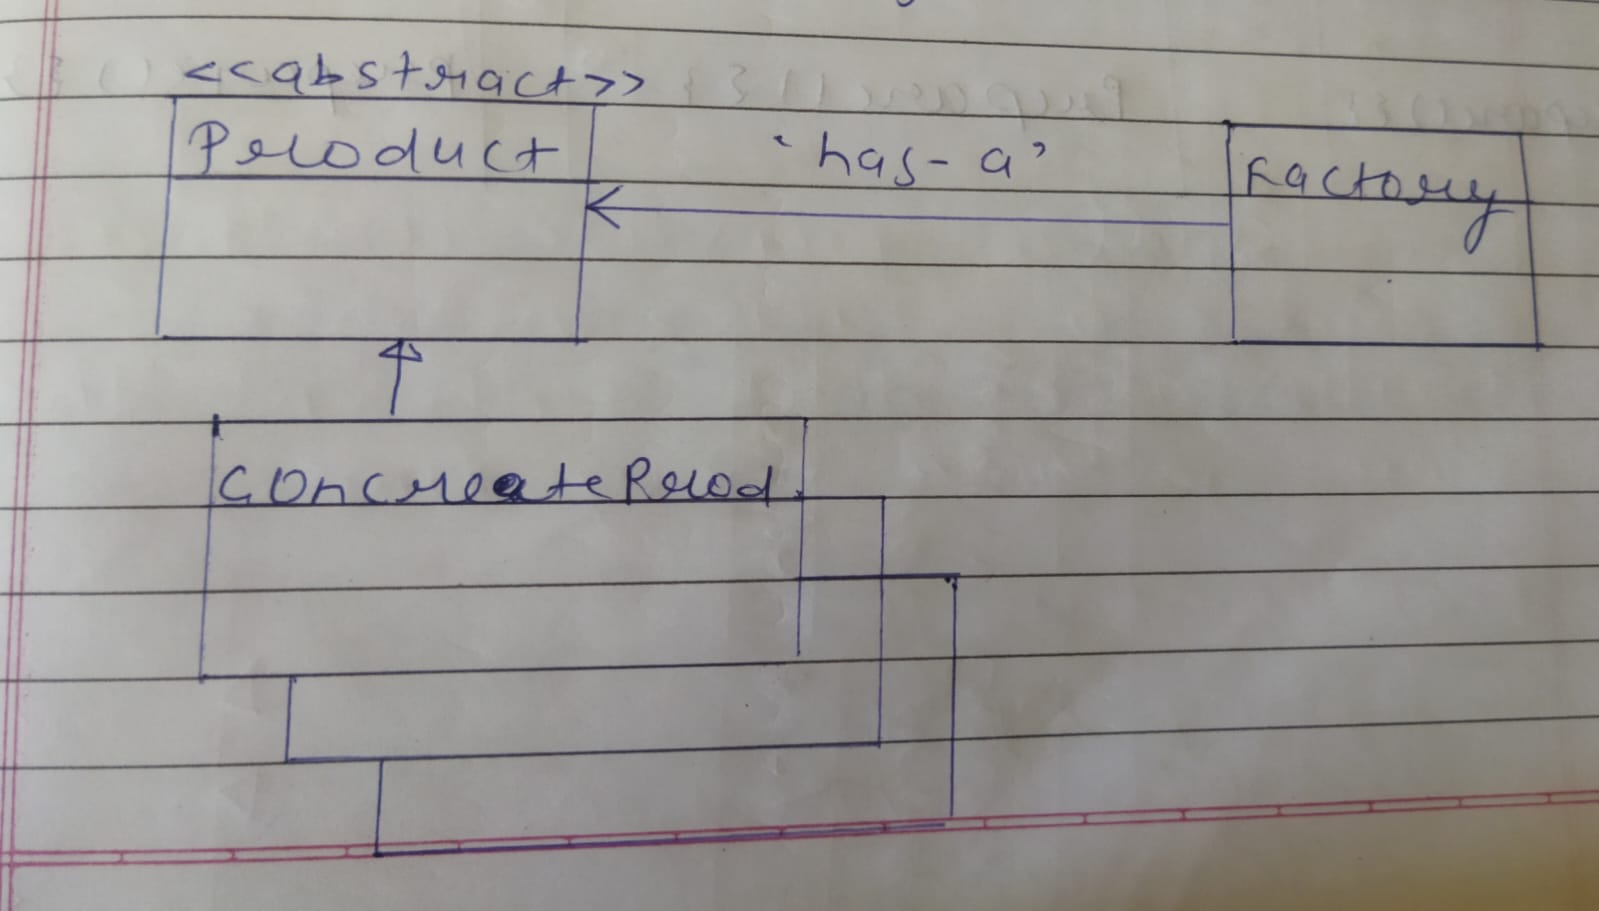 <<abstract>>
Product
'has-a'
Factory
ConcreateProd.